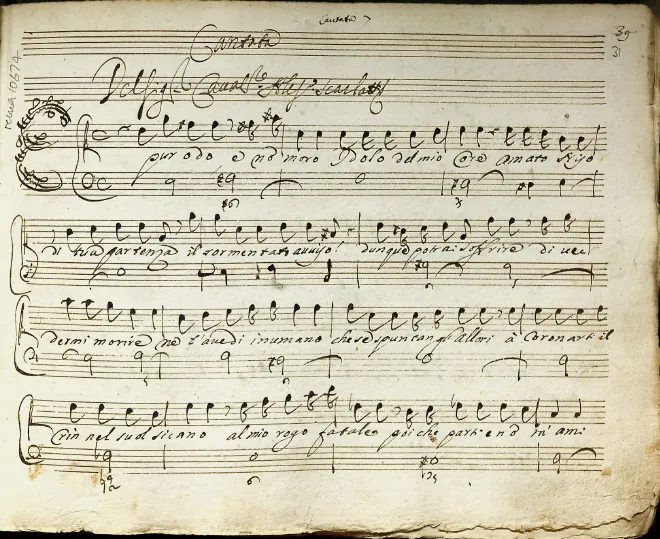 Cantata
39
31
Cantata
Del Sigr. Caval.re Aless.o Scarlatti
rema 10674
pur odo e nõ moro Idolo del mio Core amato
di tua partenza il tormentato auuiso! dunque potrai soffrire di ue
dermi morire ne t'auedi inumano che se spuntan gl'allori à Coronarti il
Crin nel suol sicano al mio rogo fatale poi che parti e nõ m'ami